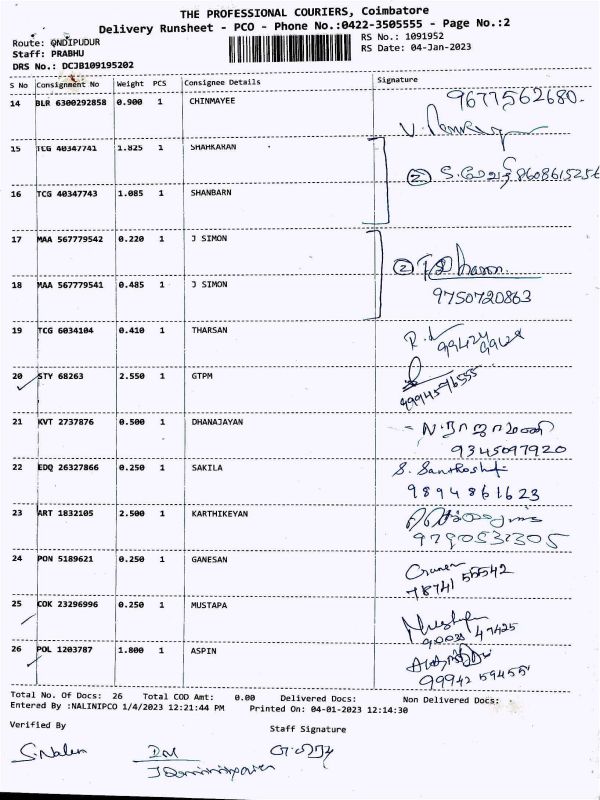 THE PROFESSIONAL COURIERS, Coimbatore
Delivery Runsheet - PCO - Phone No.:0422-3505555 - Page No.:2
Route: ONDIPUDUR RS No.: 1091952
Staff: PRABHU RS Date: 04-Jan-2023
DRS No.: DCJB109195202
S No Consignment No Weight PCS Consignee Details Signature
14 BLR 6300292858 0.900 1 CHINMAYEE 9677562680.
15 TCG 40347741 1.825 1 SHAHKARAN
② 8608615256
16 TCG 40347743 1.085 1 SHANBARN
17 MAA 567779542 0.220 1 J SIMON
②
18 MAA 567779541 0.485 1 J SIMON 9750720863
19 TCG 6034104 0.410 1 THARSAN
20 STY 68263 2.550 1 GTPM
9994596555
21 KVT 2737876 0.500 1 DHANAJAYAN
9345097920
22 EDQ 26327866 0.250 1 SAKILA S. Santhosh
9894861623
23 ART 1832105 2.500 1 KARTHIKEYAN
9790531305
24 PON 5189621 0.250 1 GANESAN
78741 55542
25 COK 23296996 0.250 1 MUSTAPA
90033 47425
26 POL 1203787 1.800 1 ASPIN
99942 59455
Total No. Of Docs: 26 Total COD Amt: 0.00 Delivered Docs: Non Delivered Docs:
Entered By :NALINIPCO 1/4/2023 12:21:44 PM Printed On: 04-01-2023 12:14:30
Verified By Staff Signature
S. Nalin